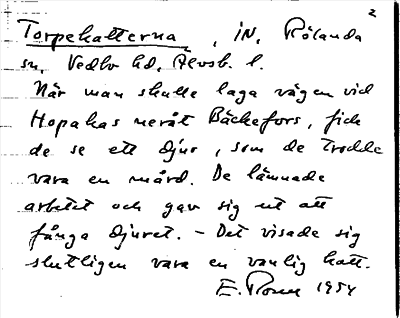 2
Torpekatterna, IN, Rölanda
sn, Vedbo hd, Älvsb. l.
När man skulle laga vägen vid
Hopakas neråt Bäckefors, fick
de se ett djur, som de trodde
vara en mård. De lämnade
arbetet och gav sig ut att
fånga djuret. - Det visade sig
slutligen vara en vanlig katt.
E. 1954